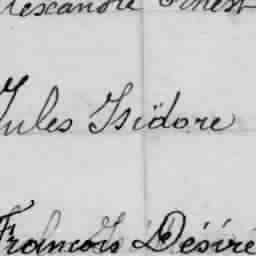 Alexandre Ernest
Jules Isidore
François Désiré